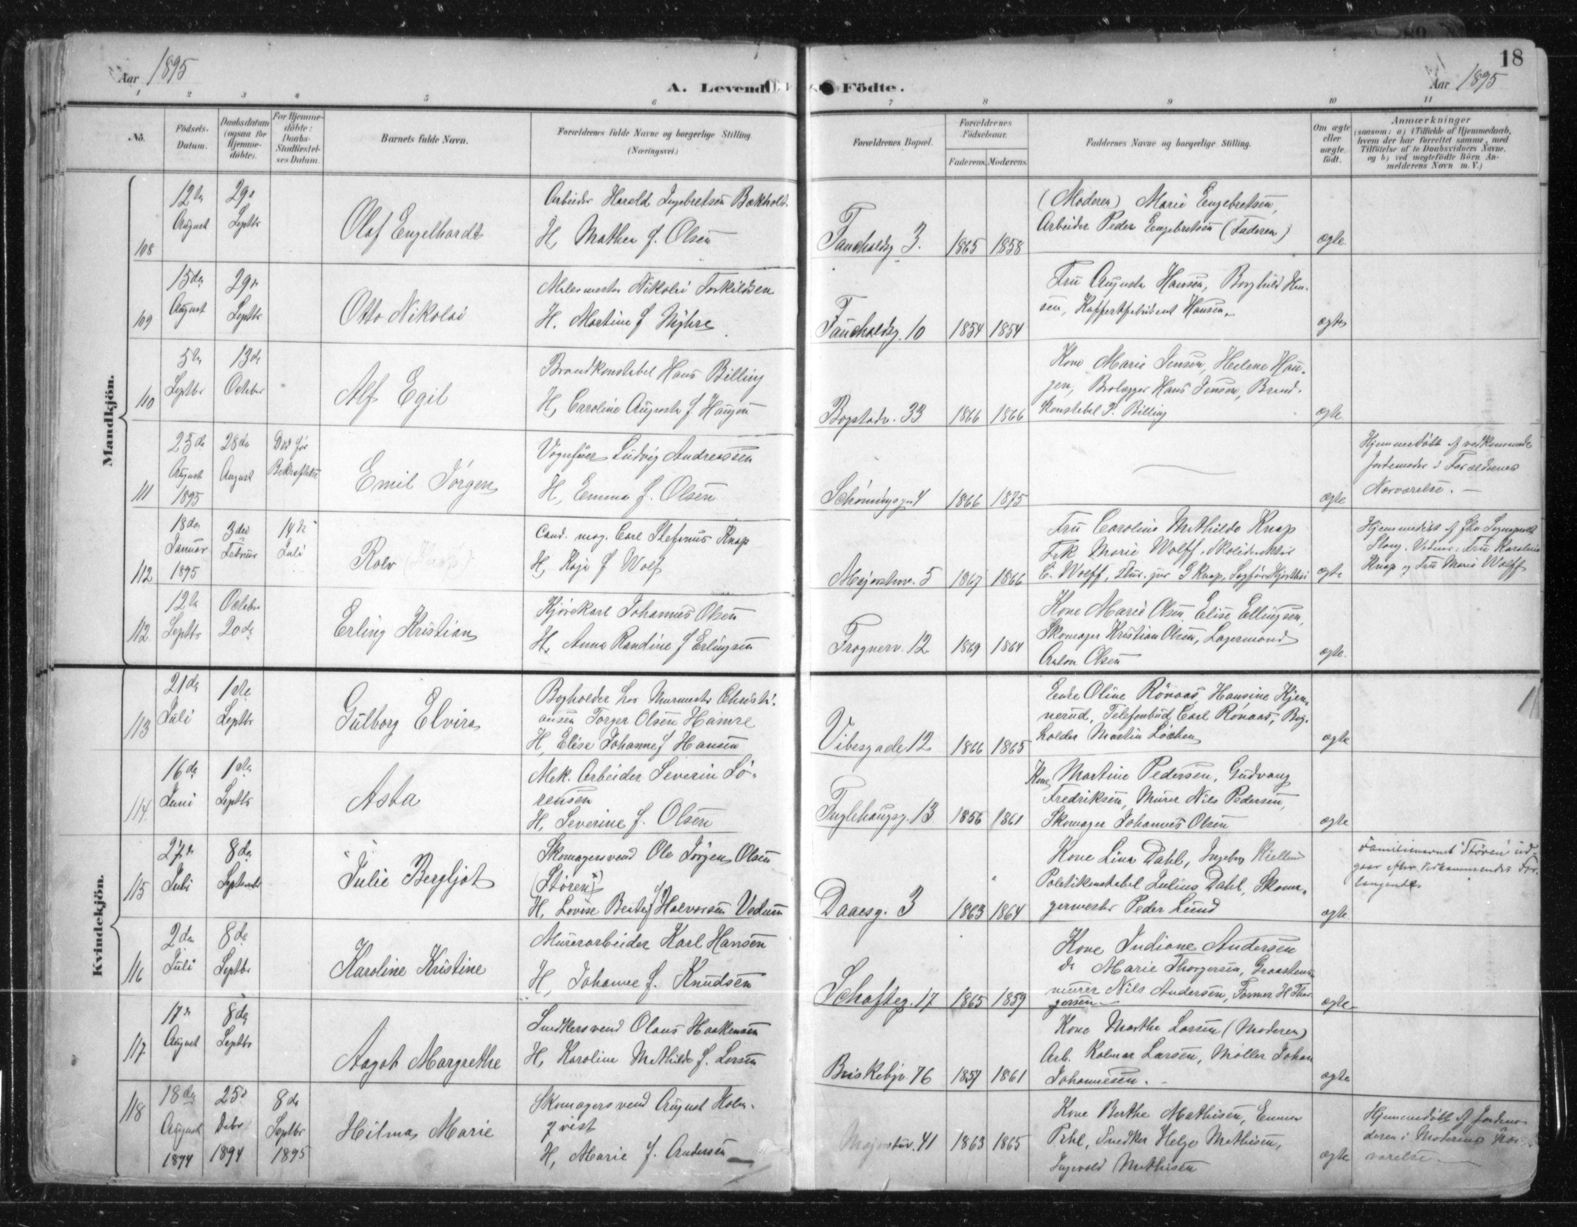 Aar 1895
A. Levende Födte.
18
Aar 1895
1 2 3 4 5 6 7 8 9 10 11
No.
Födsels-
Datum.
Daabsdatum
(ogsaa for
Hjemme-
döbte).
For Hjemme-
döbte:
Daabs-
Stadfæstel-
ses Datum.
Barnets fulde Navn.
Forældrenes fulde Navne og borgerlige Stilling
(Næringsvei.)
Forældrenes Bopæl.
Forældrenes
Födselsaar.
Faderens. Moderens.
Faddernes Navne og borgerlige Stilling.
Om ægte
eller
uægte
födt.
Anmærkninger
(saasom: a) i Tilfælde af Hjemmedaab,
hvem der har forrettet samme, med
Tilföielse af to Daabsvidners Navne,
og b) ved uægtefödte Börn An-
melderens Navn m. V.)
Mandkjön.
108
12te August
29de Septbr
Olaf Engelhardt
Arbeider Harald Ingebretsen Bakholdt
H, Mathea f. Olsen
3.
1865 1858
(Moderen) Marie Engebretsen,
Arbeider Peder Engebretsen (Faderen)
ægte
109
15de August
29de Septbr
Otto Nikolai
Malermester Nikolai Torkildsen
H. Martine f Myhre
10
1854 1854
Fru Augusta Hansen, Borghild Han-
sen, Hansen.
ægte
110
5te Septbr
13de October
Alf Egil
Brandkonstabel Hans Billing
H, Caroline Augusta f Haugen
Bogstadv. 33
1866 1866
Kone Marie Jensen, Helene Hau-
gen, Brolægger Hans Jensen, Brand-
konstabel P. Billing
ægte
111
23de August 1895
28de August
Död för
Bekræftelse
Emil Jörgen
Vognfører Ludvig Andreassen
H, Emma f. Olsen
Schöningsg. 4
1866 1875
ægte
Hjemmedöbt af vedkommende
Jordemoder i Forældrenes
Nærværelse. —
112
18de Januar 1895
3die Februar
14de Juli
Rolv (Knap)
Cand. mag. Carl Stefenus Knap
H, Kaja f Wolff
Majorstuv. 5
1867 1866
Fru Caroline Mathilde Knap
Frk Marie Wolff,
C. Wolff, Stud. jur
ægte
Hjemmedöbt af
Vidner: Fru Karoline
Knap og Fru Marie Wolff
112
12te Septbr
October 20de
Erling Kristian
Kjörekarl Johannes Olsen
H, Anna Randine f Erlingsen
Frognerv. 12
1869 1864
Kone Marie Olsen, Elise Ellingsen,
Skomager Kristian Olsen, Lagermand
Anton Olsen
ægte
Kvindekjön.
113
21de Juli
1ste Septbr
Gulborg Elvira
Bogholder hos Murmester Christi-
ansen Torger Olsen Hamre
H, Elise Johanne f Hansen
Vibesgade 12
1866 1865
Enke Oline Rönaas, Hansine Kjen-
nerud, Telefonbud Carl Rönaas, Bog-
holder Martin Löken
ægte
114
16de Juni
1ste Septbr
Asta
Mek. Arbeider Severin Sö-
rensen
H, Severine f. Olsen
Fuglehaugsg. 13
1856 1861
Kone Martine Pedersen, Gudvang
Fredriksen, Murer Nils Pedersen,
Skomager Johannes Olsen
ægte
115
27de Juli
8de September
Julie Bergljot
Skomagersvend Ole Jörgen Olsen
(Stören)
H, Lovise Bertea f Halvorsen Vedum
Daaesg. 3
1863 1864
Kone Lina Dahl, Ingeborg Kielland
Politikonstabel Julius Dahl, Skoma-
germester Peder Lund
ægte
Familienavnet Stören ud-
gaar efter Vedkommendes For-
langende
116
2de Juli
8de Septbr
Karoline Kristine
Murerarbeider Karl Hansen
H, Johanne f. Knudsen
Schafteg. 17
1865 1859
Kone Indiane Andersen
do Marie Thorgersen, Graastens-
murer Nils Andersen, Former H Thor-
gersen
ægte
117
17de August
8de Septbr
Aagot Margrethe
Snedkersvend Olaus Haakensen
H, Karoline Mathilde f. Larsen
Briskebyv. 76
1857 1861
Kone Marthe Larsen (Moderen)
Arb. Kolmar Larsen, Möller Johan
Johannesen. —
ægte
118
18de August 1894
25de Debr 1894
8de Septbr 1895
Hilma Marie
Skomagersvend August Holm-
qvist
H, Marie f. Andersen
Majorstuv. 41
1863 1865
Kone Berthe Mathisen, Emma
Pehl, Snedker Helge Mathisen,
Ingvald Mathisen
ægte
Hjemmedöbt af Jordemo-
deren i Moderens Nær-
værelse —